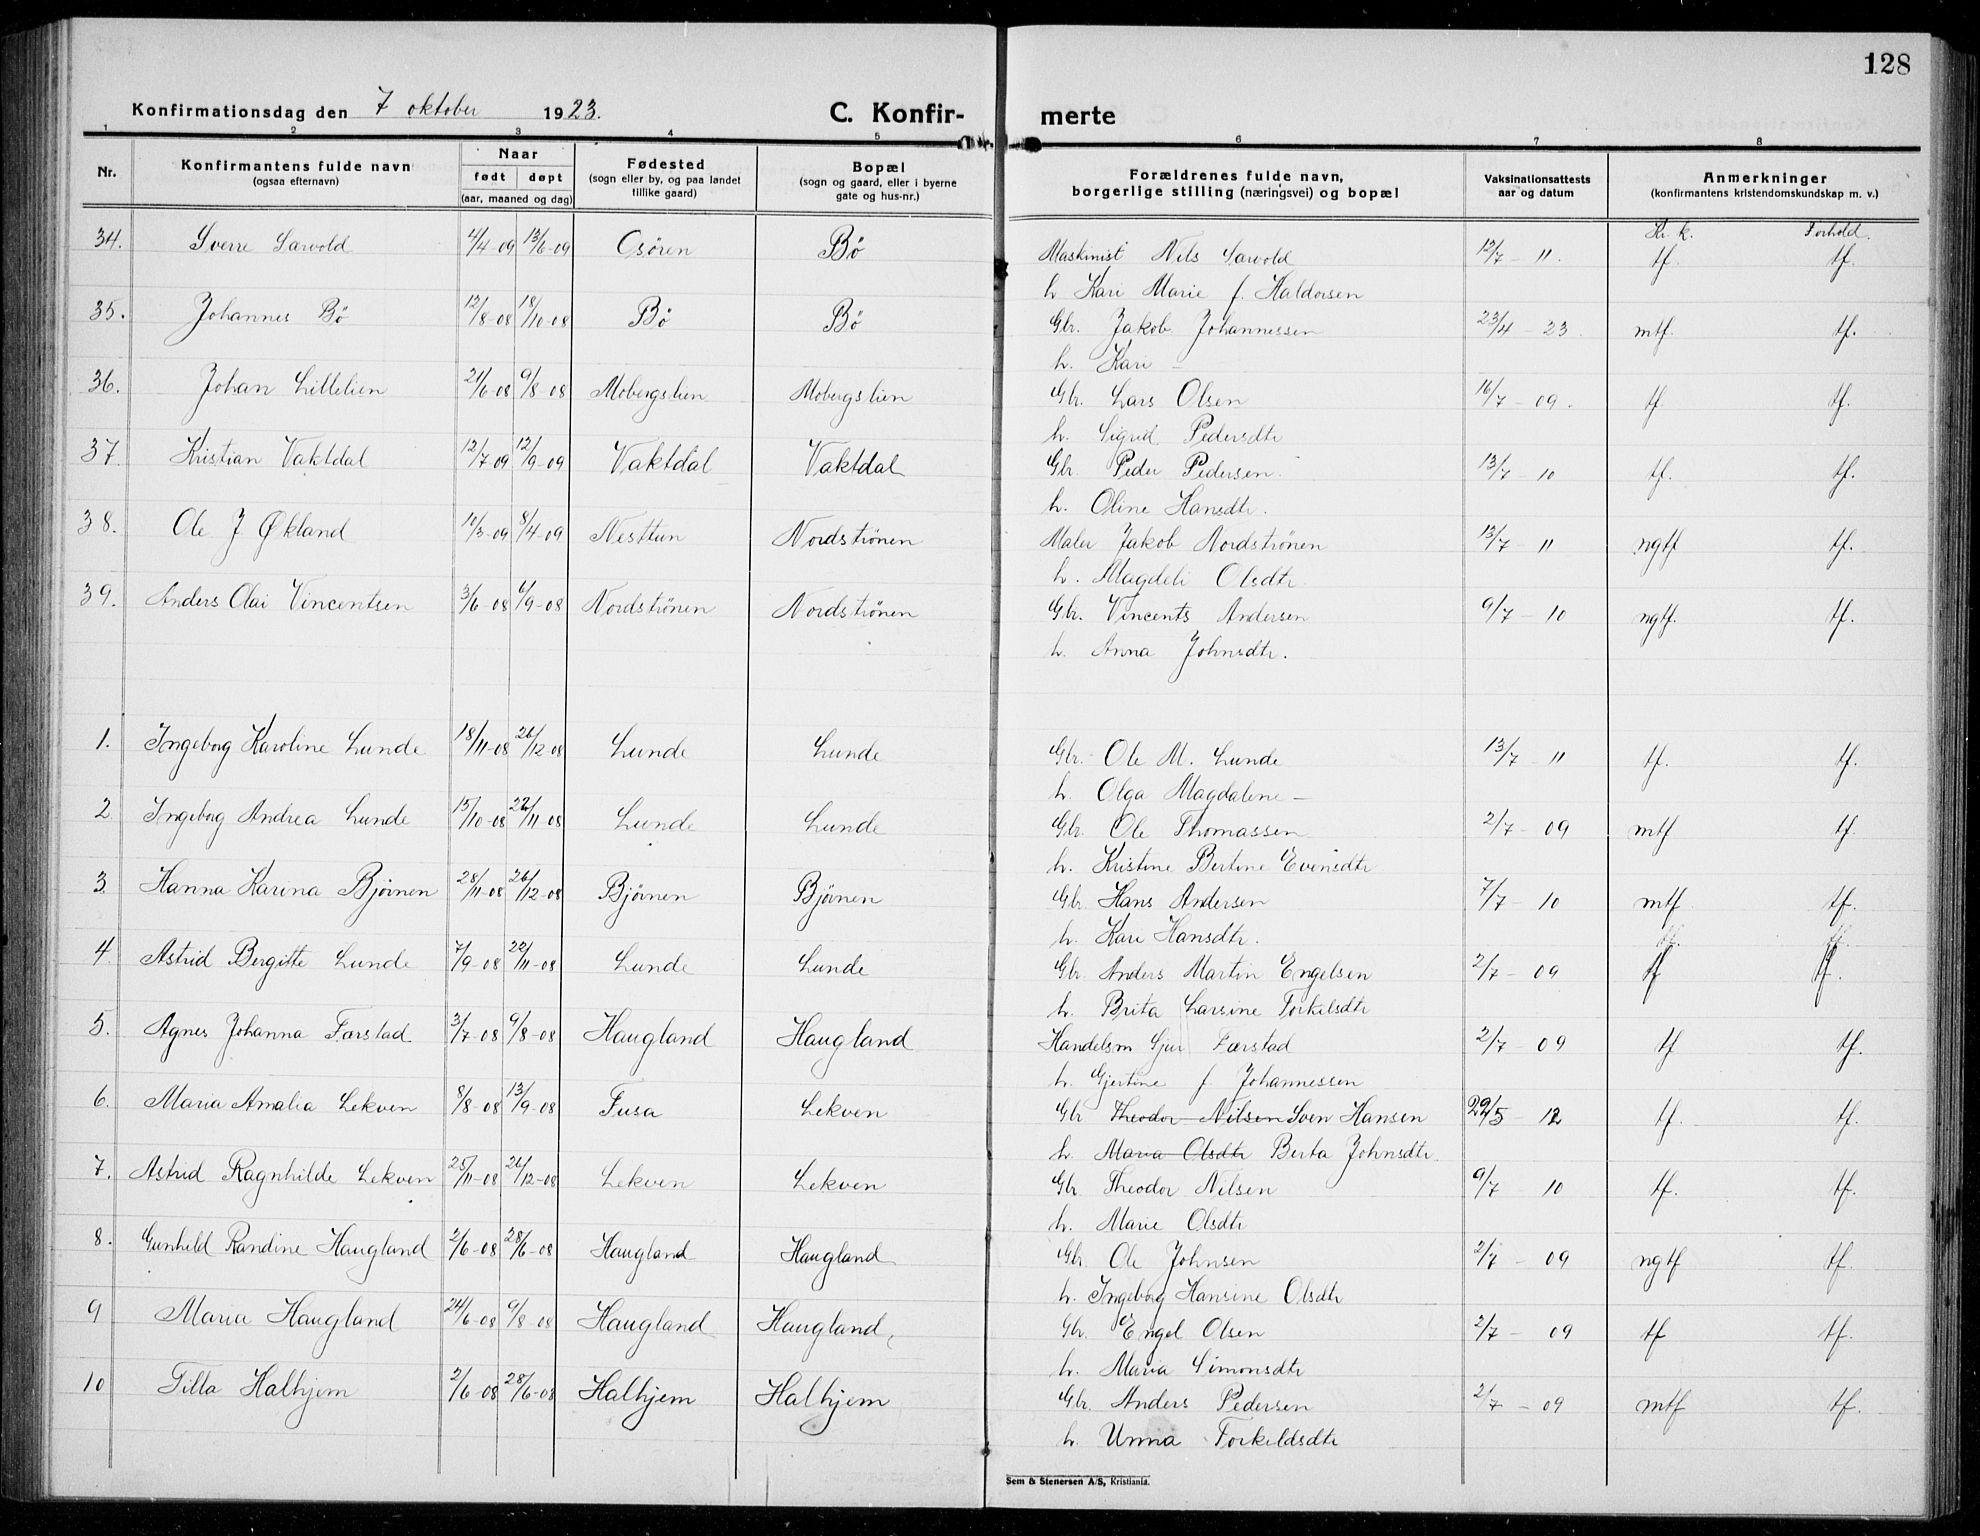 128
Konfirmationsdag den 7 oktober 1923. C. Konfir- merte
1 2 3 4 5 6 7 8
Nr. Konfirmantens fulde navn (ogsaa efternavn) Naar født døpt (aar, maaned og dag) Fødested (sogn eller by, og paa landet tillike gaard) Bopæl (sogn og gaard, eller i byerne gate og hus-nr.) Forældrenes fulde navn, borgerlige stilling (næringsvei) og bopæl Vaksinationsattests aar og datum Anmerkninger (konfirmantens kristendomskundskap m. v.)
Kr. k. Forhold.
34. Sverre Sørvold 4/4-09 13/6-09 Osören Bö Maskinist Nils Sørvold 12/7 - 11. tf. tf.
h. Kari Marie f. Haldorsen
35. Johannes Bö 12/8-08 18/10-08 Bö Bö Gbr. Jakob Johannessen 23/4 - 23. mtf. tf.
h. Kari -
36. Johan Lillelien 21/6-08 9/8-08 Mobergslien Mobergslien Gbr. Lars Olsen 16/7 - 09. tf. tf.
h. Sigrid Pedersdtr
37 Kristian Vaktdal 12/7-09 12/9-09 Vaktdal Vaktdal Gbr. Peder Pedersen. 13/7 - 10 tf. tf.
h. Oline Hansdtr.
38. Ole J Økland 10/3-09 8/4-09 Nesttun Nordströnen Maler Jakob Nordströnen 13/7 - 11 ngtf tf.
h. Magdeli Olsdtr.
39. Anders Olai Vincentsen 3/6-08 6/9-08 Nordströnen Nordströnen Gbr. Vincents Andersen 9/7 - 10 ngtf. tf.
h. Anna Johnsdtr.
1. Ingeborg Karoline Lunde 18/11-08 26/12-08 Lunde Lunde Gbr. Ole M. Lunde 13/7 - 11 tf. tf.
h. Olga Magdalene -
2 Ingeborg Andrea Lunde 15/10-08 22/11-08 Lunde Lunde Gbr. Ole Thomassen 2/7 - 09 mtf tf.
h. Kristine Bertine Evensdtr
3. Hanna Karina Björnen 28/11-08 26/12-08 Björnen Björnen Gbr. Hans Andersen 7/7 - 10 mtf tf.
h. Kari Hansdtr.
4. Astrid Bergitte Lunde 7/9-08 22/11-08 Lunde Lunde Gbr. Anders Martin Engelsen 2/7 - 09 tf tf.
h. Brita Larsine Torkelsdtr
5. Agnes Johanna Færstad 3/7-08 9/8-08 Haugland Haugland Handelsm Sjur Færstad 2/7 - 09 tf tf.
h. Gjertine f. Johannessen
6. Maria Amalia Lekven 8/8-08 13/9-08 Fusa Lekven Gbr Theodor Nilsen Sven Hansen 29/5 - 12 tf. tf.
h. Maria Olsdtr Berta Johnsdtr.
7. Astrid Ragnhilde Lekven 25/11-08 26/12-08 Lekven Lekven Gbr Theodor Nilsen 9/7 10 tf. tf.
h. Marie Olsdtr
8. Gunhild Randine Haugland 2/6-08 28/6-08 Haugland Haugland Gbr Ole Johnsen 2/7 - 09 ngtf tf.
h. Ingeborg Hansine Olsdtr
9 Maria Haugland 24/6-08 9/8-08 Haugland Haugland Gbr. Engel Olsen 2/7 - 09 tf tf.
h. Maria Simonsdtr
10 Tilla Halhjem 2/6-08 28/6-08 Halhjem Halhjem Gbr. Anders Pedersen 2/7 - 09 mtf tf.
h. Unna Torkeldsdtr
Sem & Stenersen A/S, Kristiania.